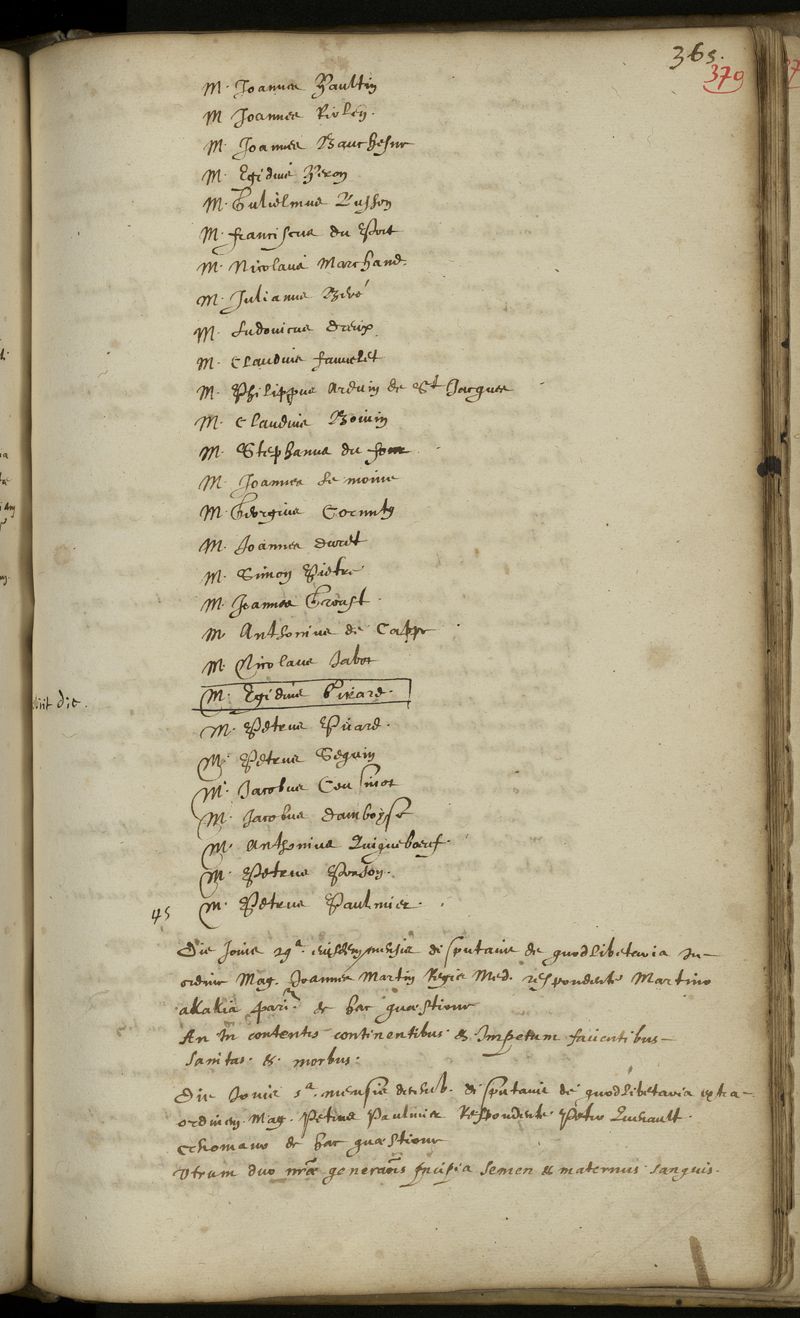 365.
379
M. Joannes Paultin
M Joannes Riolen.
M. Joannes Bauchesne
M. Egidius Peron
M. Gulielmus Lusson
M. franciscus du Port
M. Nicolaus Marchand.
M. Julianus Biré
M. Ludovicus dreux
M. Claudius fauuelet
M. Philippus Arduin de St Jacques
M. Claudius Boiuin
M. Stephanus du four
M. Joannes Le moine
M. Georgius Cornuty
M. Joannes duret
M. Simon Pietre
M. Joannes Groust.
M Anthonius de Cappe
M. Nicolaus Jabot
die.
M. Egidius Pirard.
M. Petrus Piiard.
M. Petrus Seguin
M. Jacobus Cousinot
M. Jacobus damboyse
M. Anthonius Quiqueboeuf.
M. Petrus Pordon.
45 M. Petrus Paulmier.
Die Jouis 29ª. eiusdem mensis disputauit de quodlibetaria in
ordine Mag. Joannes Martin Regis Med. respondente Martino
akakia pari. de hac quæstione
An in contentis continentibus & Impetum facientibus
sanitas. & morbus.
Die Jouis 1ª. mensis decemb. disputauit de quodlibetaria extra
ordinem. Mag. Petrus Paulmier Respondente Petro Quenault.
cenomano de hac quæstione
Vtrum duo nræ generaois principia semen & maternus sanguis.